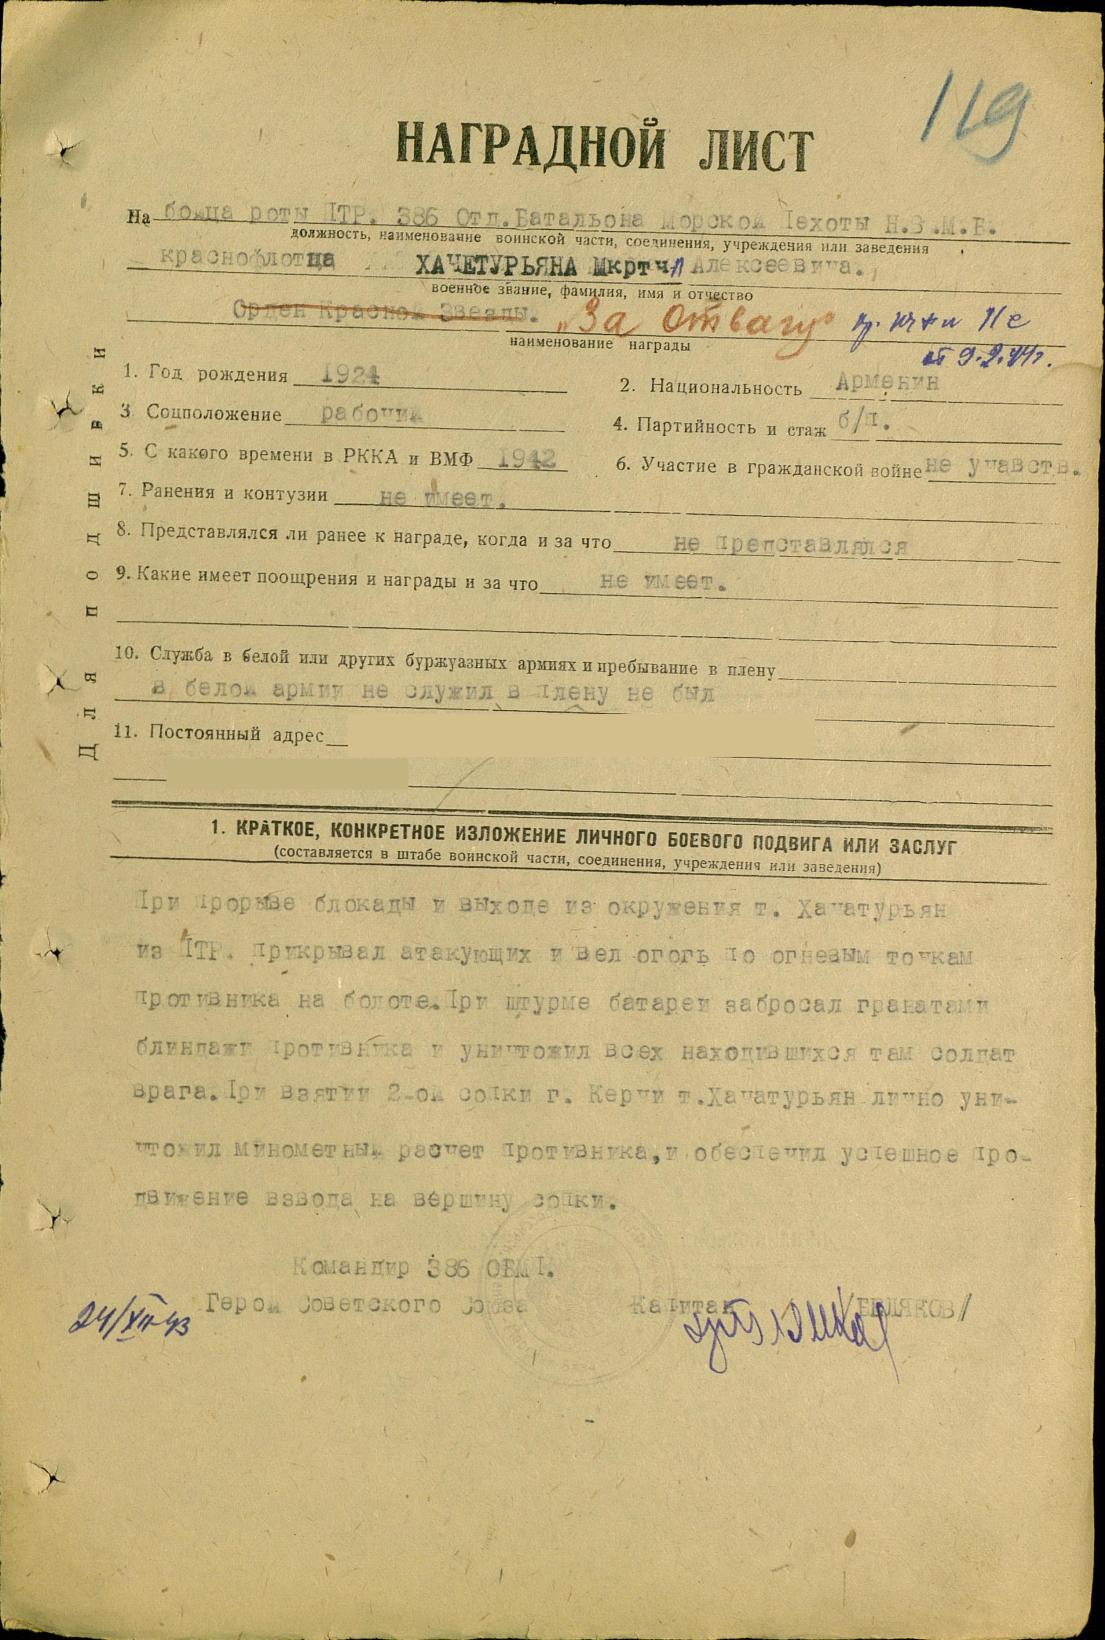 119
НАГРАДНОЙ ЛИСТ
На бойца роты ПТР. 386 Отд.Батальона Морской Пехоты Н.В.М.Б.
должность, наименование воинской части, соединения, учреждения или заведения
краснофлотца ХАЧЕТУРЬЯНА Мкртч Алексеевича.
военное звание, фамилия, имя и отчество
Орден Красной Звезды. „За отвагу"
наименование награды
от 9.2.44г.
1. Год рождения 1924
2. Национальность Арменин
3 Соцположение рабочий
4. Партийность и стаж б/п.
5. С какого времени в РККА и ВМФ 1942
6. Участие в гражданской войне не учавств.
7. Ранения и контузии не имеет.
8. Представлялся ли ранее к награде, когда и за что не представлялся
9. Какие имеет поощрения и награды и за что не имеет.
10. Служба в белой или других буржуазных армиях и пребывание в плену
в белой армии не служил в плену не был
11. Постоянный адрес
Для подшивки
1. КРАТКОЕ, КОНКРЕТНОЕ ИЗЛОЖЕНИЕ ЛИЧНОГО БОЕВОГО ПОДВИГА ИЛИ ЗАСЛУГ
(составляется в штабе воинской части, соединения, учреждения или заведения)
При прорыве блокады и выходе из окружения т. Хачатурьян
из ПТР. прикрывал атакующих и вел огогь по огневым точкам
противника на болоте.При штурме батареи забросал гранатами
блиндажи противника и уничтожил всех находившихся там солдат
врага.При взятии 2-ой сопки г. Керчи т.Хачатурьян лично уни-
чтожил минометный расчет противника,и обеспечил успешное про-
движение взвода на вершину сопки.
Командир 386 ОБМП.
Герой Советского Союза Капитан /БЕЛЯКОВ/
24/XII-43